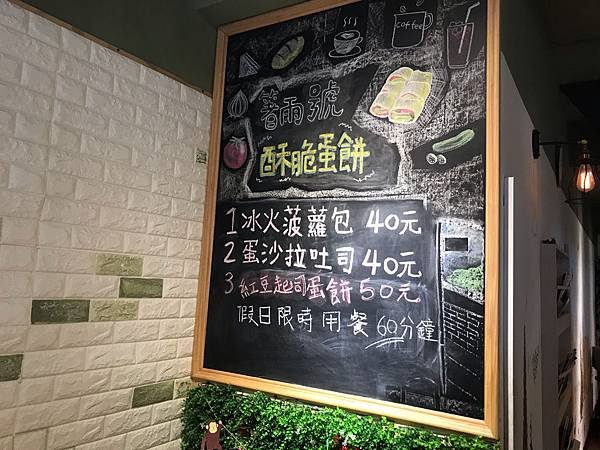 coffee
暑雨號
酥脆蛋餅
1 冰火菠蘿包 40元
2 蛋沙拉吐司 40元
3 紅豆起司蛋餅 50元
假日限時用餐 60分鐘